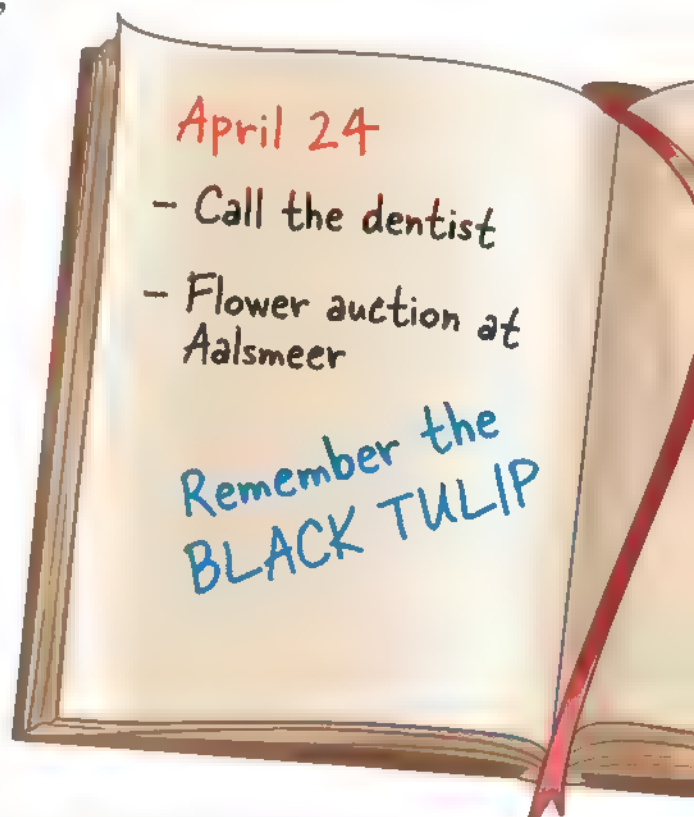 April 24
- Call the dentist
- Flower auction at
Aalsmeer
Remember the
BLACK TULIP